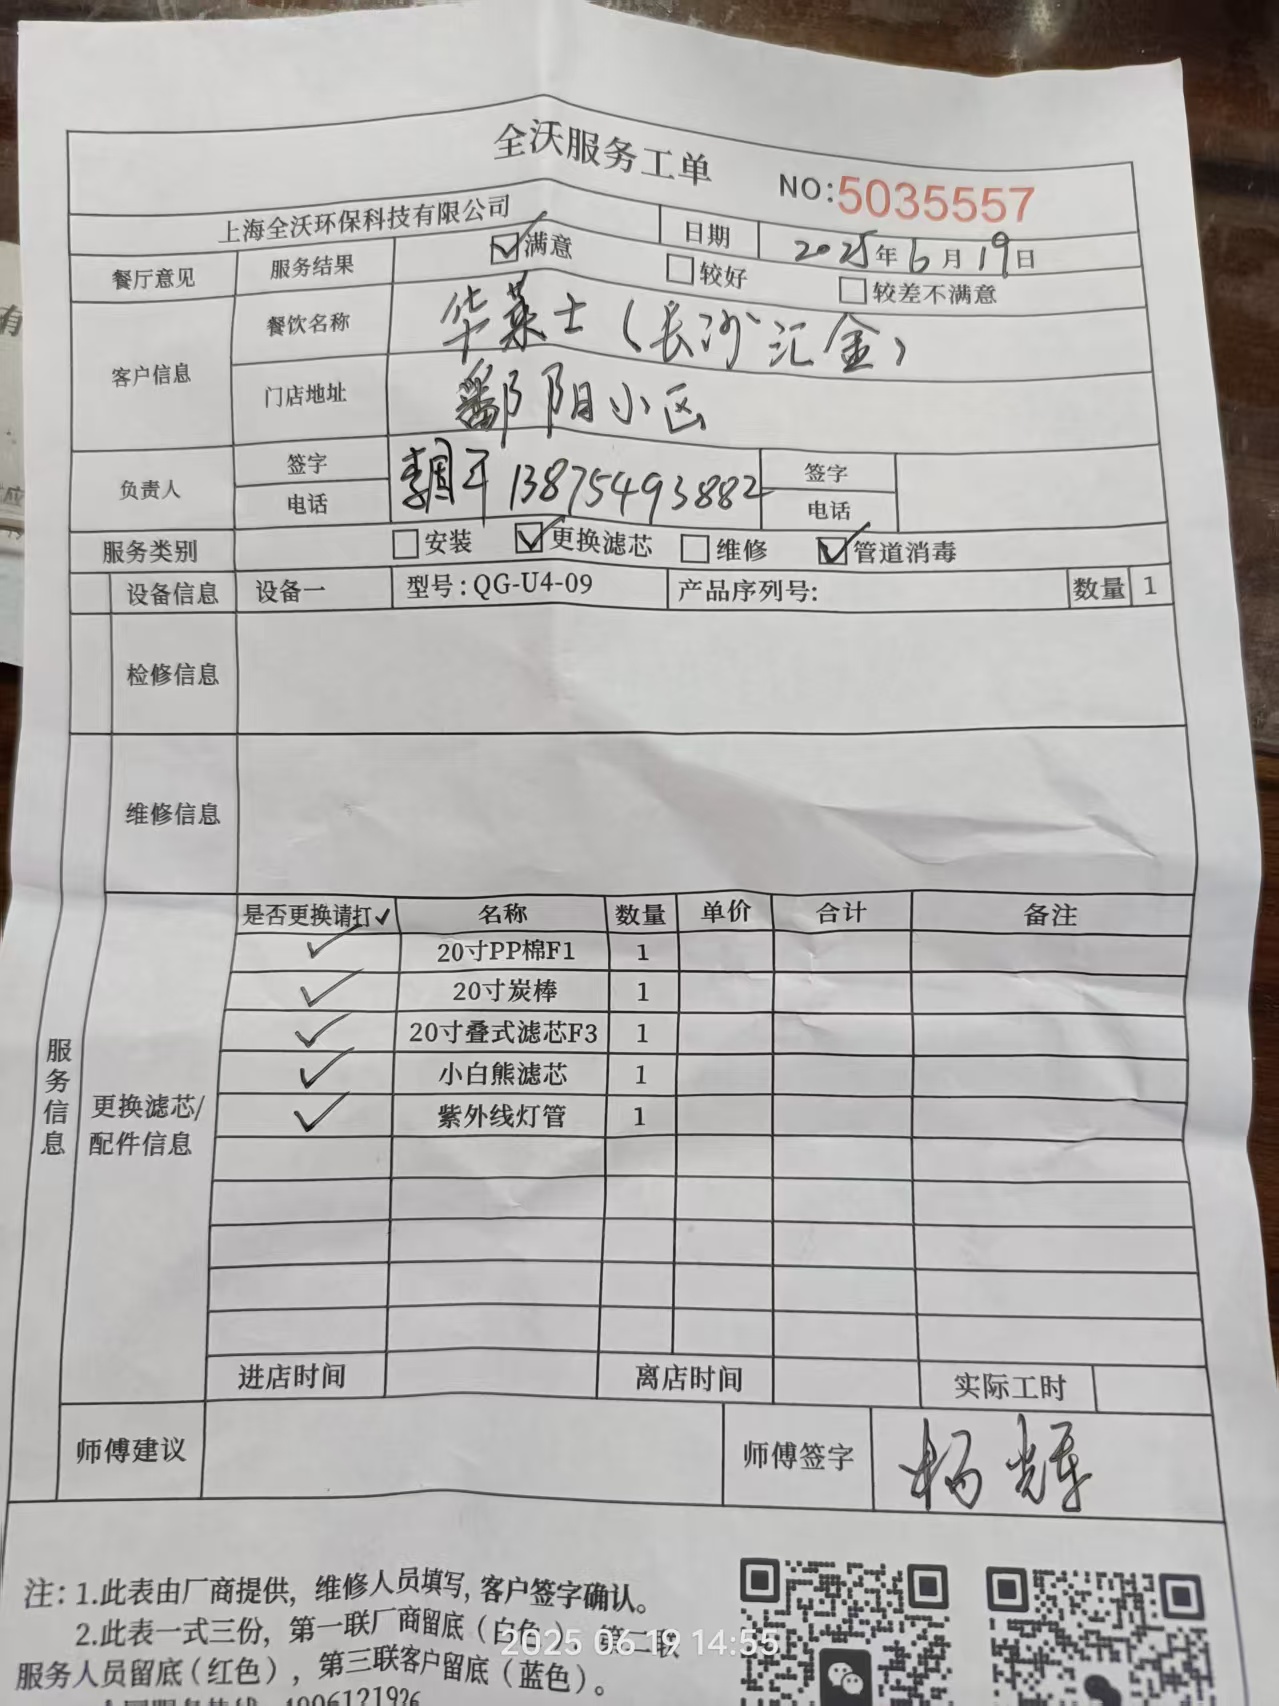 全沃服务工单
NO:5035557
上海全沃环保科技有限公司 日期 2025年6月19日
餐厅意见 服务结果 ☑满意 □较好 □较差不满意
客户信息 餐饮名称 华莱士(长沙汇金)
门店地址 鄱阳小区
负责人 签字 电话 13875493882 签字 电话
服务类别 □安装 ☑更换滤芯 □维修 ☑管道消毒
设备信息 设备一 型号:QG-U4-09 产品序列号: 数量 1
检修信息
维修信息
服务信息
更换滤芯/
配件信息
是否更换请打✓ 名称 数量 单价 合计 备注
✓ 20寸PP棉F1 1
✓ 20寸炭棒 1
✓ 20寸叠式滤芯F3 1
✓ 小白熊滤芯 1
✓ 紫外线灯管 1
进店时间 离店时间 实际工时
师傅建议 师傅签字 杨辉
注:1.此表由厂商提供,维修人员填写,客户签字确认。
2.此表一式三份,第一联厂商留底(白色 第二联
服务人员留底(红色),第三联客户留底(蓝色)。
2025 06 19 14:55